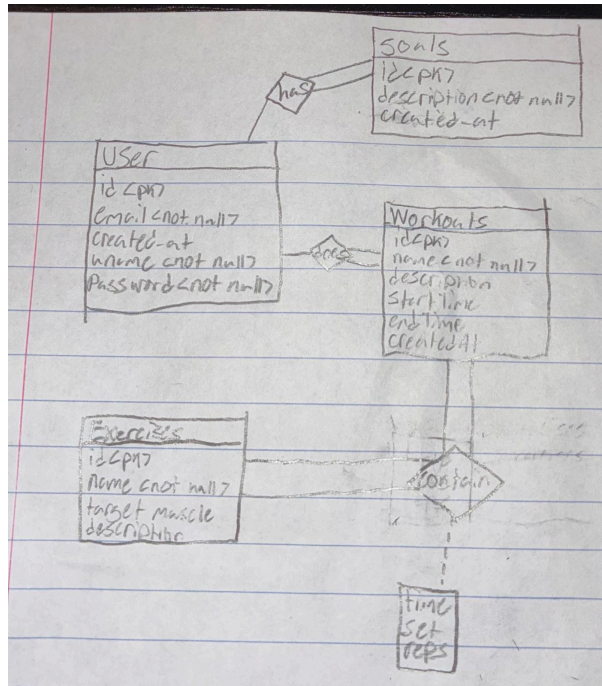 Goals
id <pk>
description <not null>
created-at
has
User
id <pk>
email <not null>
created-at
uname <not null>
password <not null>
does
Workouts
id <pk>
name <not null>
description
StartTime
endTime
CreatedAt
Exercises
id <pk>
name <not null>
target muscle
description
contain
time
set
reps